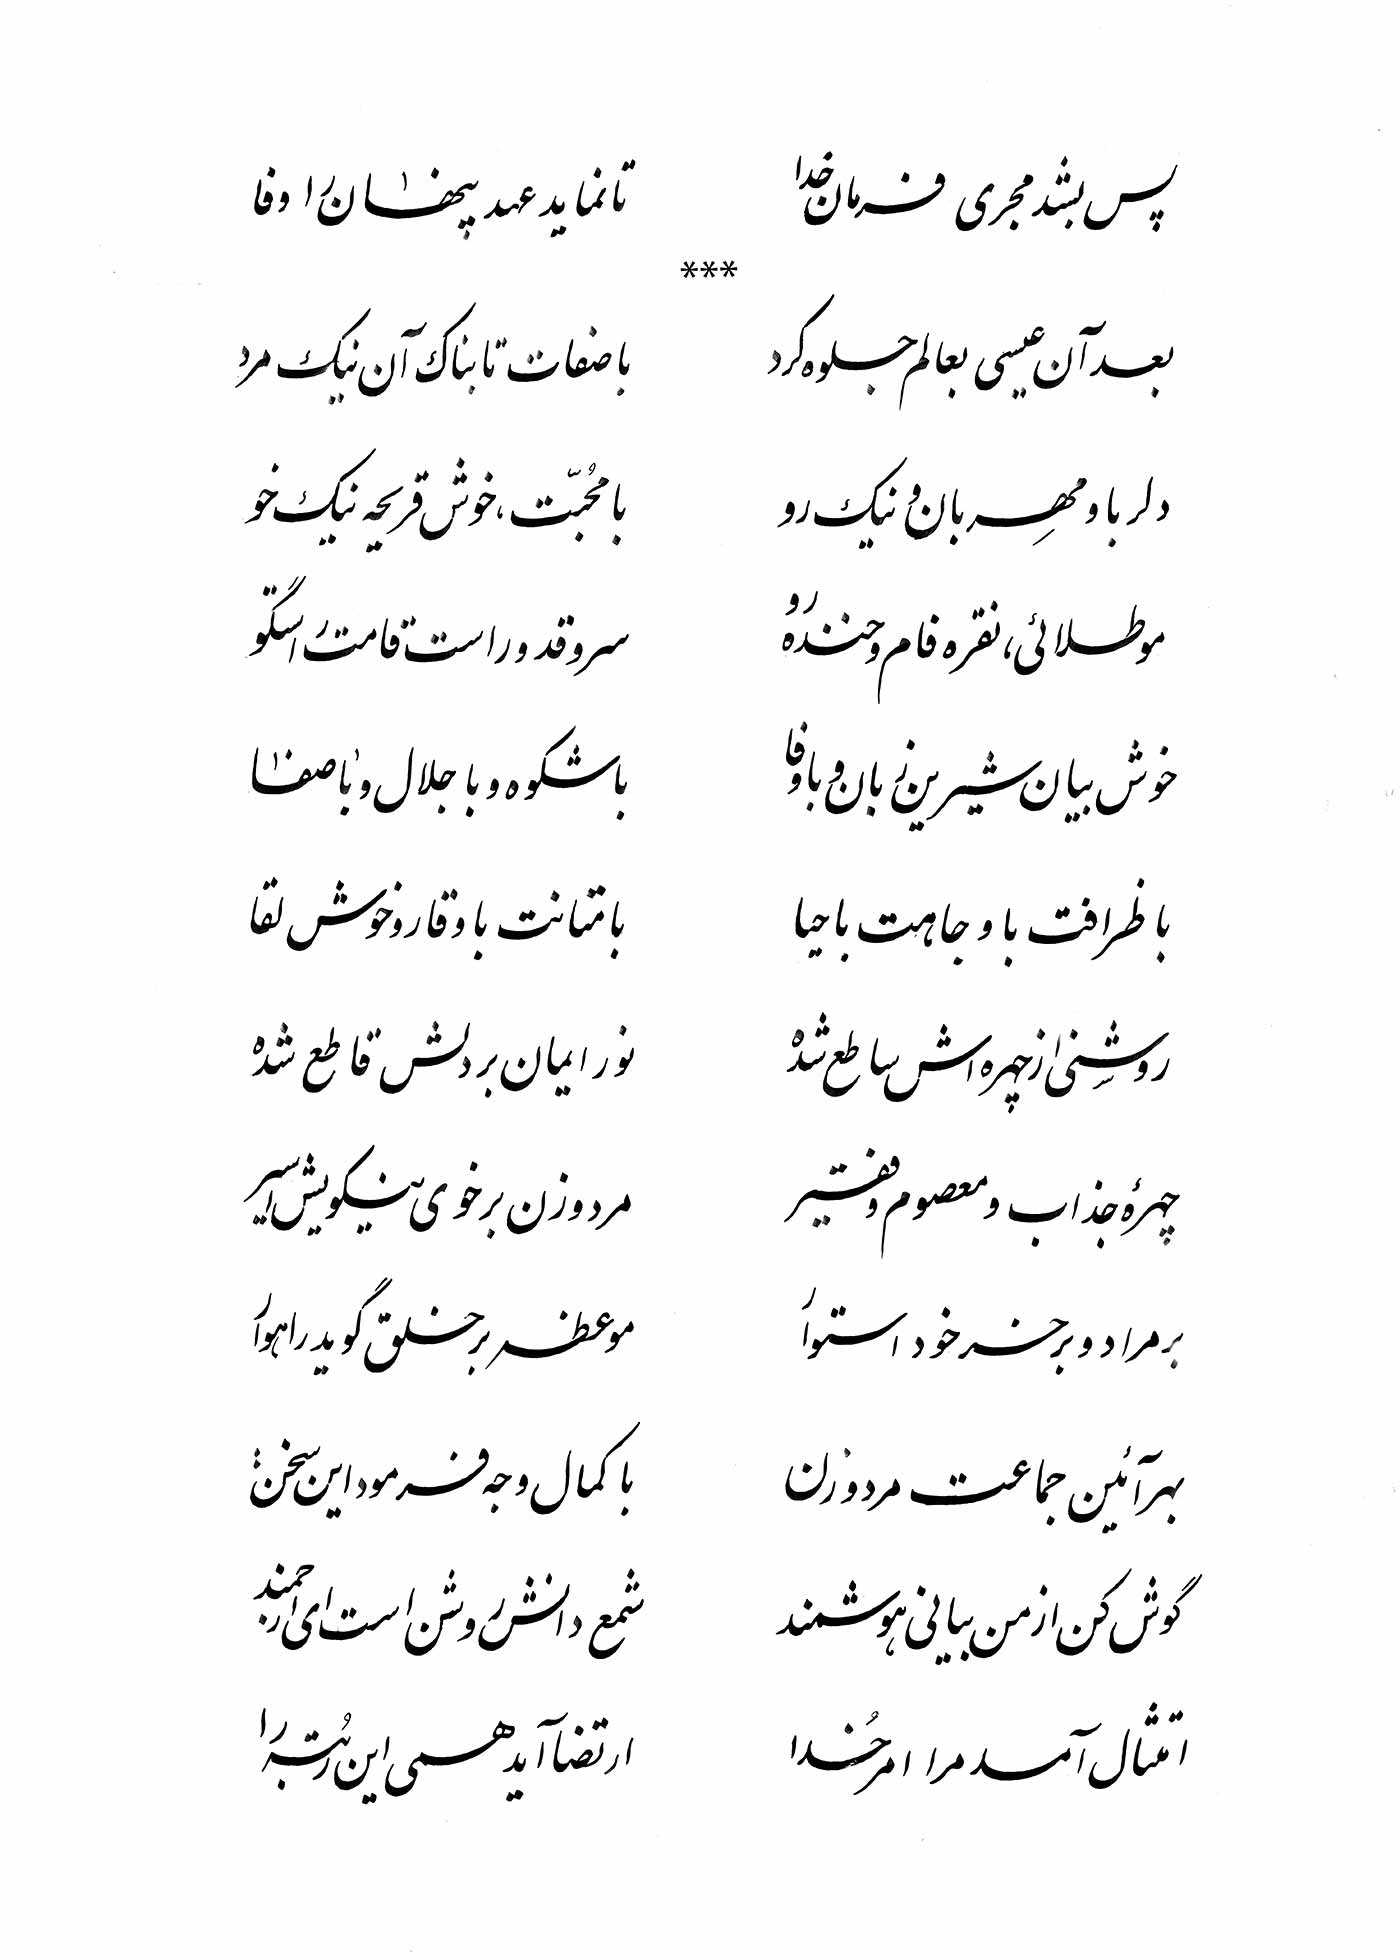 پس بشد مجری فرمان خدا تا نماید عهد پنهان را وفا
***
بعد آن عیسی بعالم جلوه کرد با صفات تابناک آن نیک مرد
دلربا و مهربان و نیک رو با محُبّت، خوش قریحه نیک خو
مو طلائی، نقره فام و خنده رو سرو قد و راست قامت راستگو
خوش بیان شیرین زبان و باوفا باشکوه و با جلال و با صفا
با ظرافت با وجاهت با حیا با متانت با وقار و خوش لقا
روشنِی از چهره اش ساطع شده نور ایمان بر دلش قاطع شده
چهرهٔ جذاب و معصوم و فقیر مرد و زن بر خوی نیکویش اسیر
بر مراد و بر خر خود استوار موعظه بر خلق گوید راهوار
بهر آئین جماعت مرد و زن با کمال وجه فرمود این سخن:
گوش کن از من بیانی هوشمند شمع دانش روشن است ای ارجمند
امتثال آمد مرا امر خُدا ارتضا آید همی این رُتبه را